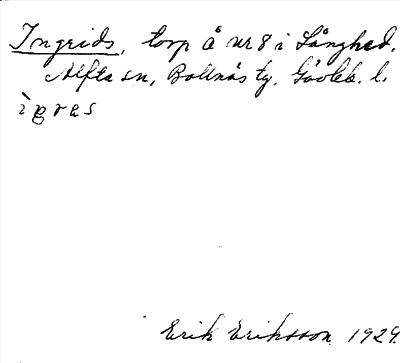 Ingrids, torp å nr 8 i Långhed,
Alfta sn, Bollnäs tg. Gävleb. l.
ìgras
Erik Eriksson 1929.